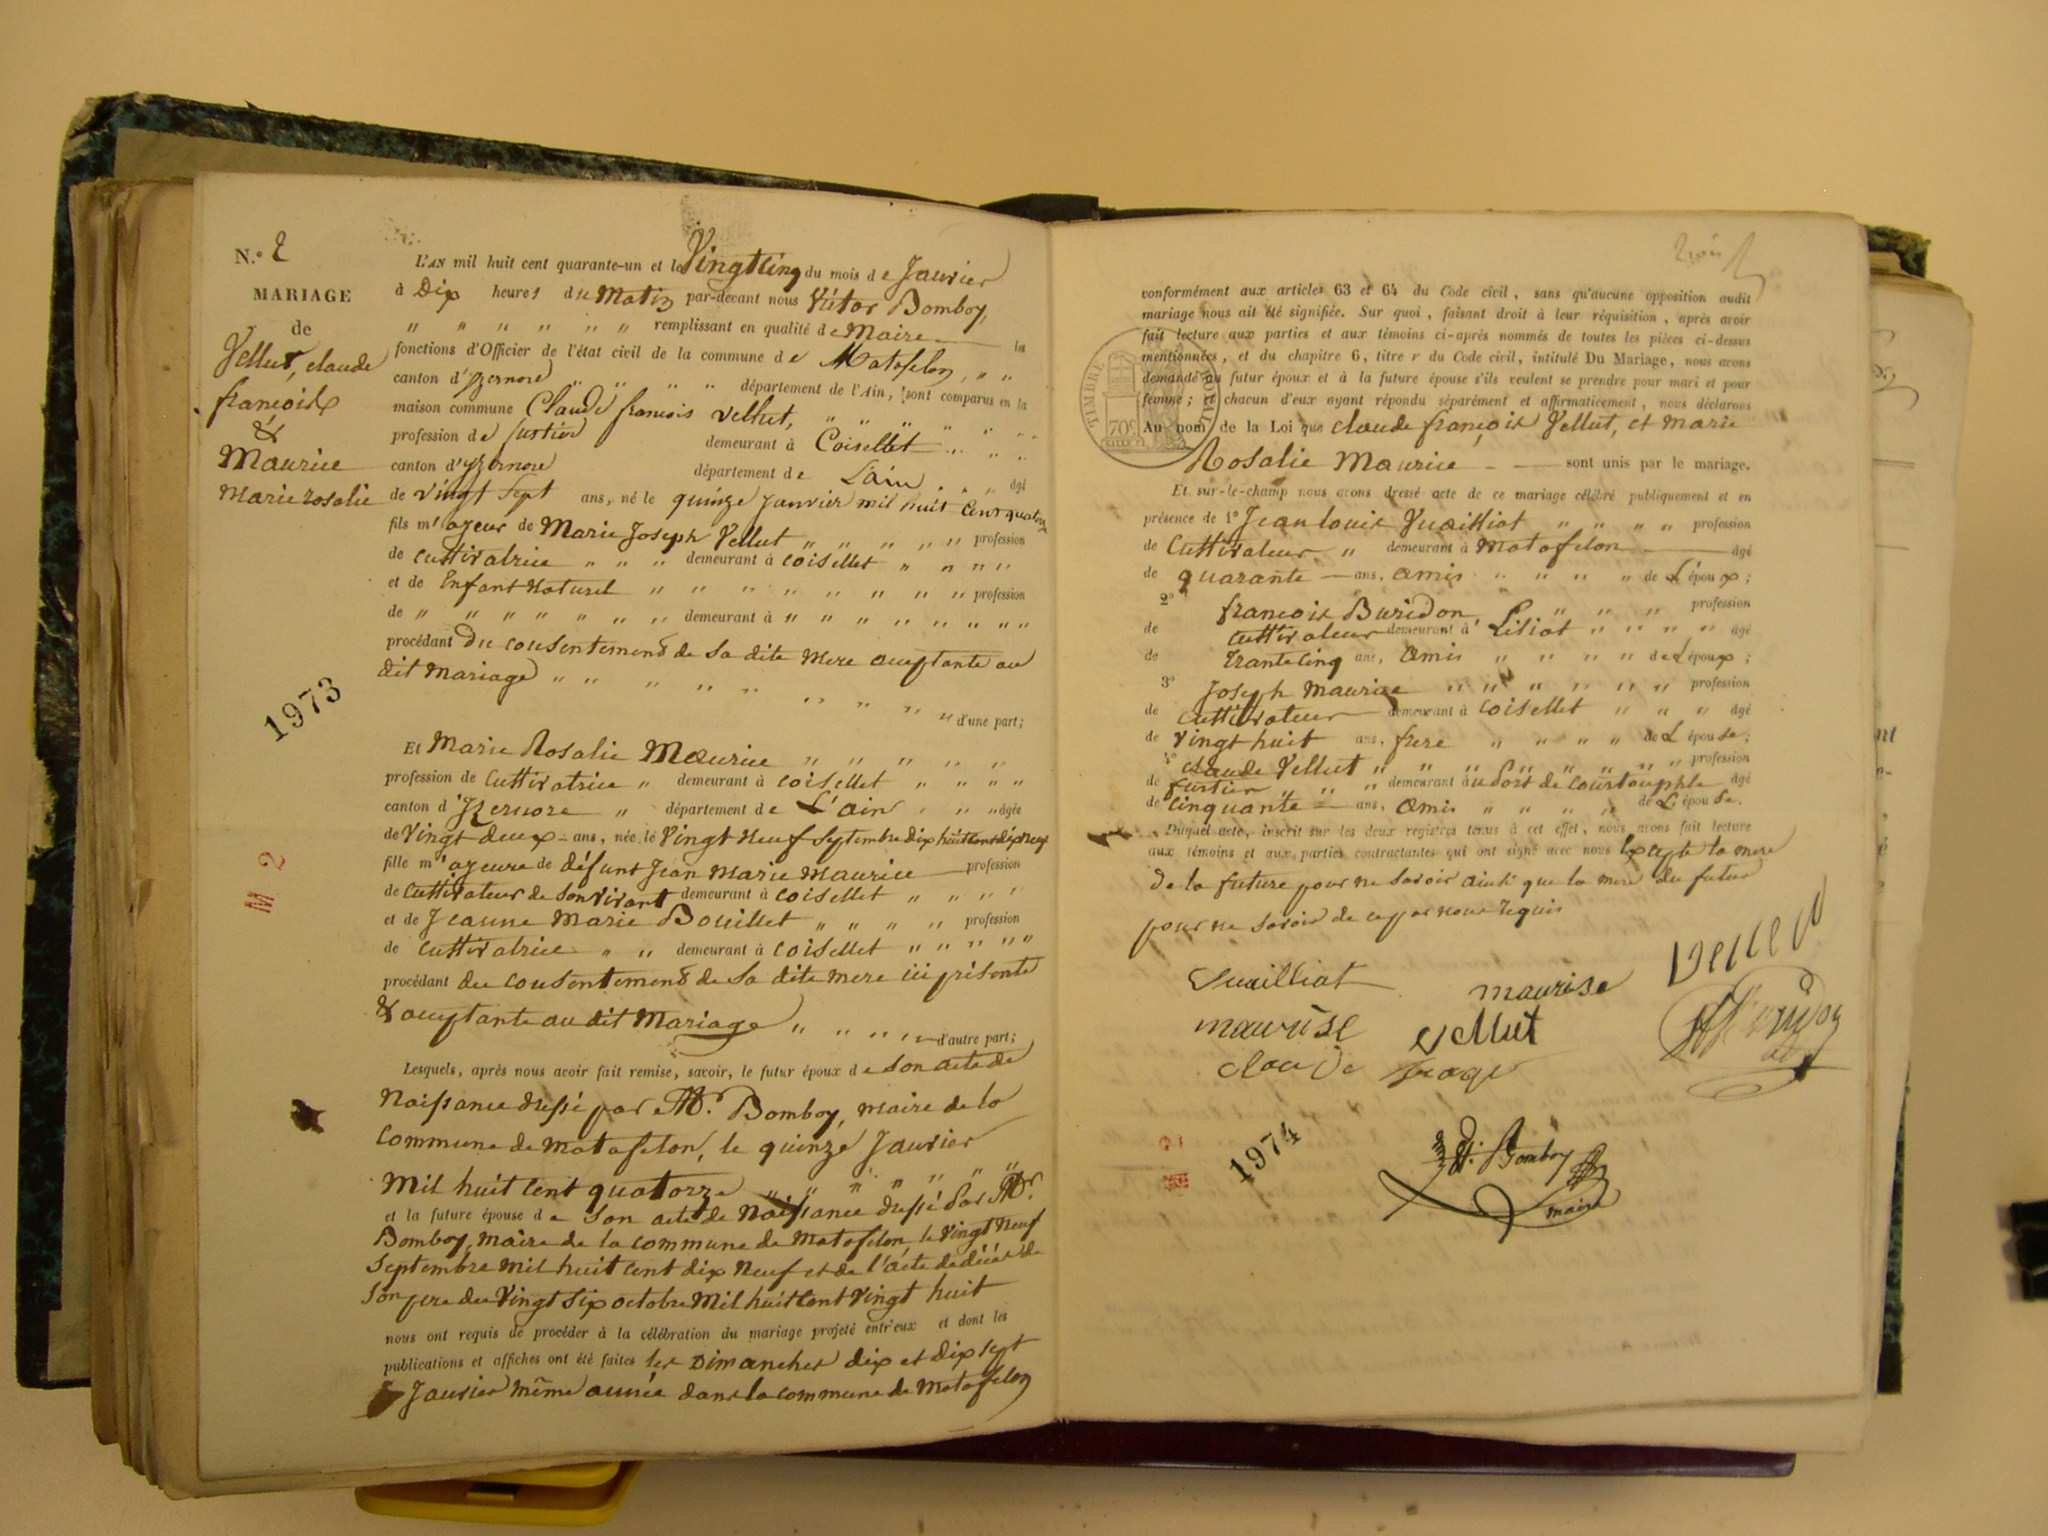 N.° 2
MARIAGE
de
Vellut, claude
françois
&
Maurice
Marie rosalie
1973
M 2
L'AN mil huit cent quarante-un et le Vingt cinq du mois de Janvier
à Dix heures du Matin par-devant nous Victor Bomboy,
" " " " " " remplissant en qualité de Maire les
fonctions d'Officier de l'état civil de la commune de Matafelon, " "
canton d'Yzernore " " " " département de l'Ain, sont comparus en la
maison commune Claude françois Vellut, " " " " "
profession de fustier demeurant à Coisellet " " "
canton d'Yzernore département de L'ain " " âgé
de vingt sept ans, né le quinze janvier mil huit cent quatorze
fils majeur de Marie Joseph Vellut " " " " " " profession
de cultivatrice " " " demeurant à coisellet " " " "
et de Enfant Naturel " " " " " " " " profession
de " " " " " " " demeurant à " " " " " " " "
procédant du consentement de sa dite Mere acceptante au
dit Mariage " " " " " " " " " d'une part;
Et Marie Rosalie Maurice " " " " "
profession de cultivatrice " demeurant à coisellet " " " "
canton d'Yzernore " département de L'ain " " " âgée
de Vingt deux ans, née le Vingt Neuf Septembre dix huit cent dix neuf
fille majeure de défunt Jean Marie Maurice profession
de cultivateur de son vivant demeurant à coisellet " " " "
et de Jeanne Marie Bouillet " " " " profession
de cultivatrice " " demeurant à coisellet " " " " "
procédant du consentement de sa dite mere ici présente
& acceptante au dit Mariage " " " " " d'autre part;
Lesquels, après nous avoir fait remise, savoir, le futur époux de son acte de
Naissance dressé par Mr. Bomboy, maire de la
commune de matafelon, le quinze Janvier
Mil huit cent quatorze " " " " " "
et la future épouse de son acte de Naissance dressé par Mr.
Bomboy, maire de la commune de matafelon le vingt neuf
Septembre mil huit cent dix Neuf et de l'acte de décès de
son pere du Vingt six octobre Mil huit cent vingt huit
nous ont requis de procéder à la célébration du mariage projeté entr'eux et dont les
publications et affiches ont été faites les Dimanches dix et dix sept
Janvier même année dans la commune de Matafelon
trois
conformément aux articles 63 et 64 du Code civil, sans qu'aucune opposition audit
mariage nous ait été signifiée. Sur quoi, faisant droit à leur réquisition, après avoir
fait lecture aux parties et aux témoins ci-après nommés de toutes les pièces ci-dessus
mentionnées, et du chapitre 6, titre r du Code civil, intitulé Du Mariage, nous avons
demandé au futur époux et à la future épouse s'ils veulent se prendre pour mari et pour
femme; chacun d'eux ayant répondu séparément et affirmativement, nous déclarons
TIMBRE ROYAL
70c
Au nom de la Loi que claude françois Vellut, et marie
Rosalie Maurice sont unis par le mariage.
Et sur-le-champ nous avons dressé acte de ce mariage célébré publiquement et en
présence de 1° Jean louis Vuailliat " " " " profession
de Cultivateur " demeurant à Matafelon âgé
de quarante ans, amis " " " " de L'époux;
2° françois Buridon, " " " profession
de cultivateur demeurant à Liliat " " " " âgé
de trante cinq ans, amis " " " " de L'époux;
3° Joseph Maurice " " " " " " profession
de cultivateur demeurant à coisellet " " " âgé
de vingt huit ans, frere " " " " de L'épouse;
4° claude Vellut " " " " " " " " profession
de fustier " " demeurant au Port de courtouphle âgé
de cinquante ans, amis " " " " de L'épouse.
Duquel acte, inscrit sur les deux registres tenus à cet effet, nous avons fait lecture
aux témoins et aux parties contractantes qui ont signé avec nous Excepte la mere
de la future pour ne savoir ainsi que la mere du futur
pour ne savoir de ce par nous requis
Vuailliat maurise Vellut
maurise vellut Buridon
claude
1974
Vr. Bomboy
maire